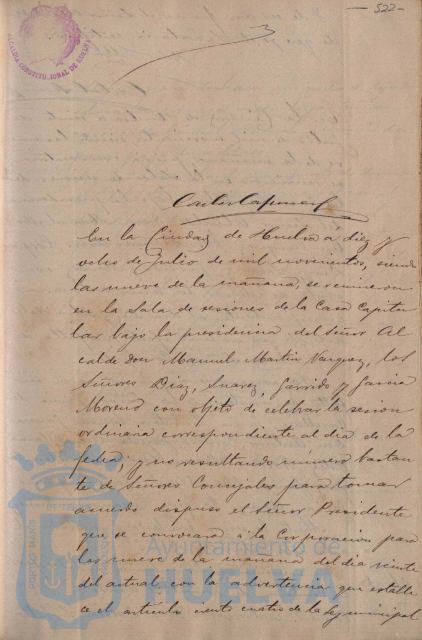 ALCALDIA CONSTITUCIONAL DE HUELVA
— 522 —
En la Ciudad de Huelva á diez y
ocho de Julio de mil novecientos, siendo
las nueve de la mañana, se reunieron
en la Sala de sesiones de la Casa Capitu
lar bajo la presidencia del Señor Al
calde don Manuel Martin Vazquez, los
Señores Diaz, Suarez, Garrido y Garcia
Moreno con objeto de celebrar la sesion
ordinaria correspondiente al dia de la
fecha; y no resultando número bastan
te de Señores Concejales para tomar
acuerdo dispuso el Señor Presidente
que se convocara á la Corporacion para
las nueve de la mañana del dia veinte
del actual con la advertencia que estable
ce el artículo ciento cuatro de la ley municipal
Ayuntamiento de
HUELVA